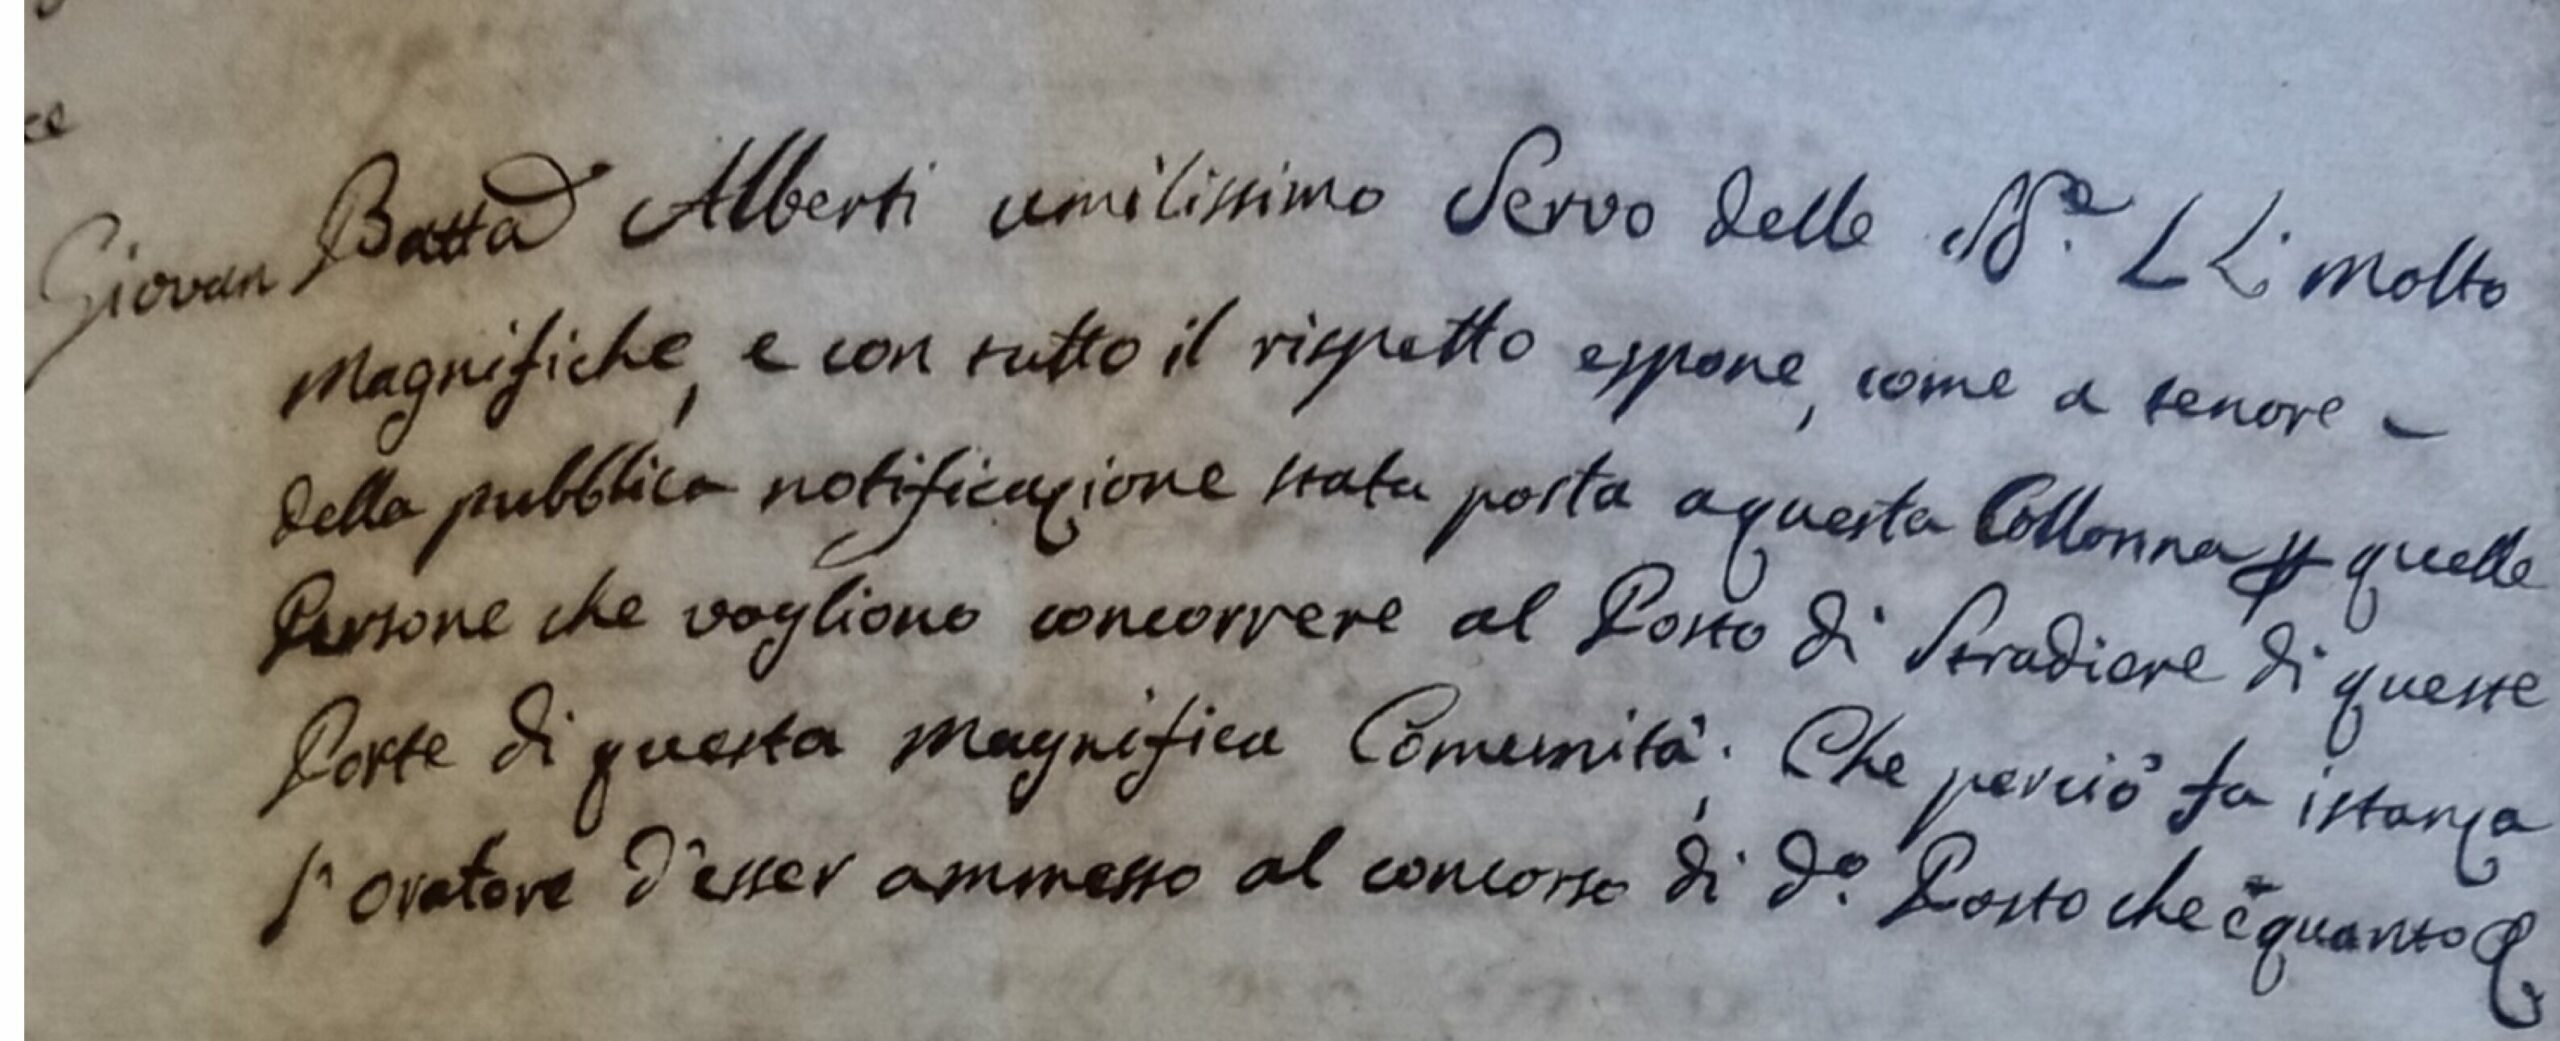 ce
Giovan Batta Alberti umilissimo Servo delle LL. molto
Magnifiche, e con tutto il rispetto espone, come a tenore -
della pubblica notificazione stata posta aquesta Collonna p quelle
Persone che vogliono concorrere al Posto di Stradiere di queste
Porte di questa Magnifica Comunità; Che perciò fa istanza
l'oratore d'esser ammesso al concorso di do. Posto che è quanto